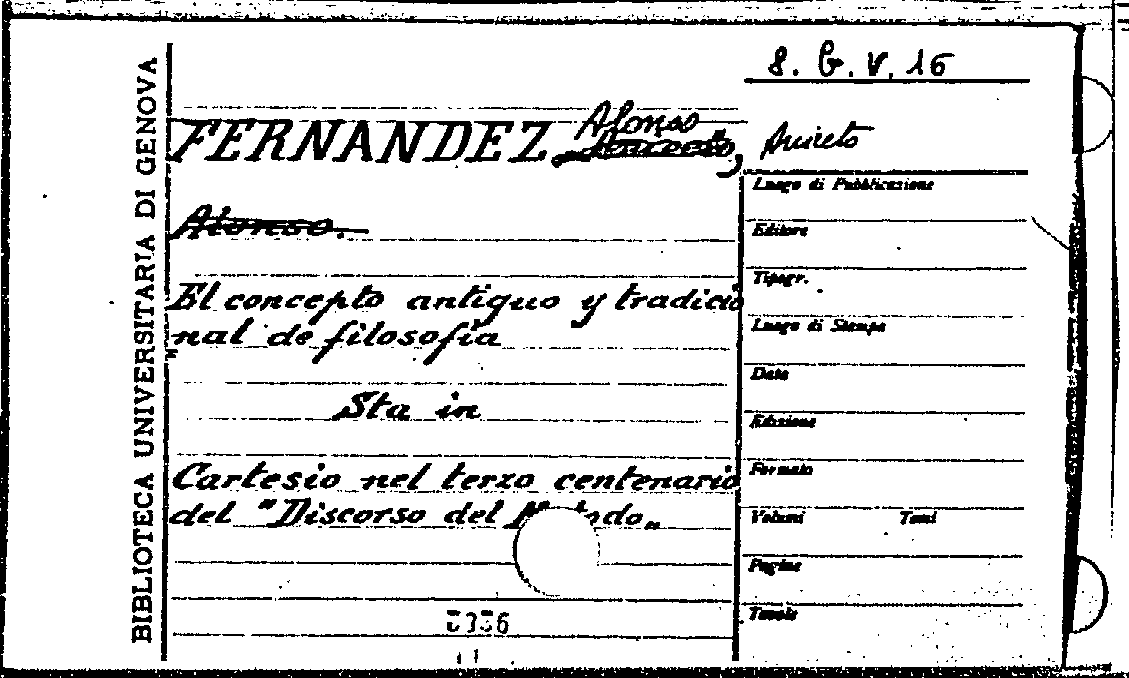 BIBLIOTECA UNIVERSITARIA DI GENOVA
8. G. V. 16
FERNANDEZ, Alonso
Alonso.
El concepto antiguo y tradicio
nal de filosofía
Sta in
Cartesio nel terzo centenario
del "Discorso del
Luogo di Pubblicazione
Editore
Tipogr.
Luogo di Stampa
Data
Edizione
Formato
Volumi Tomi
Pagine
Tavole